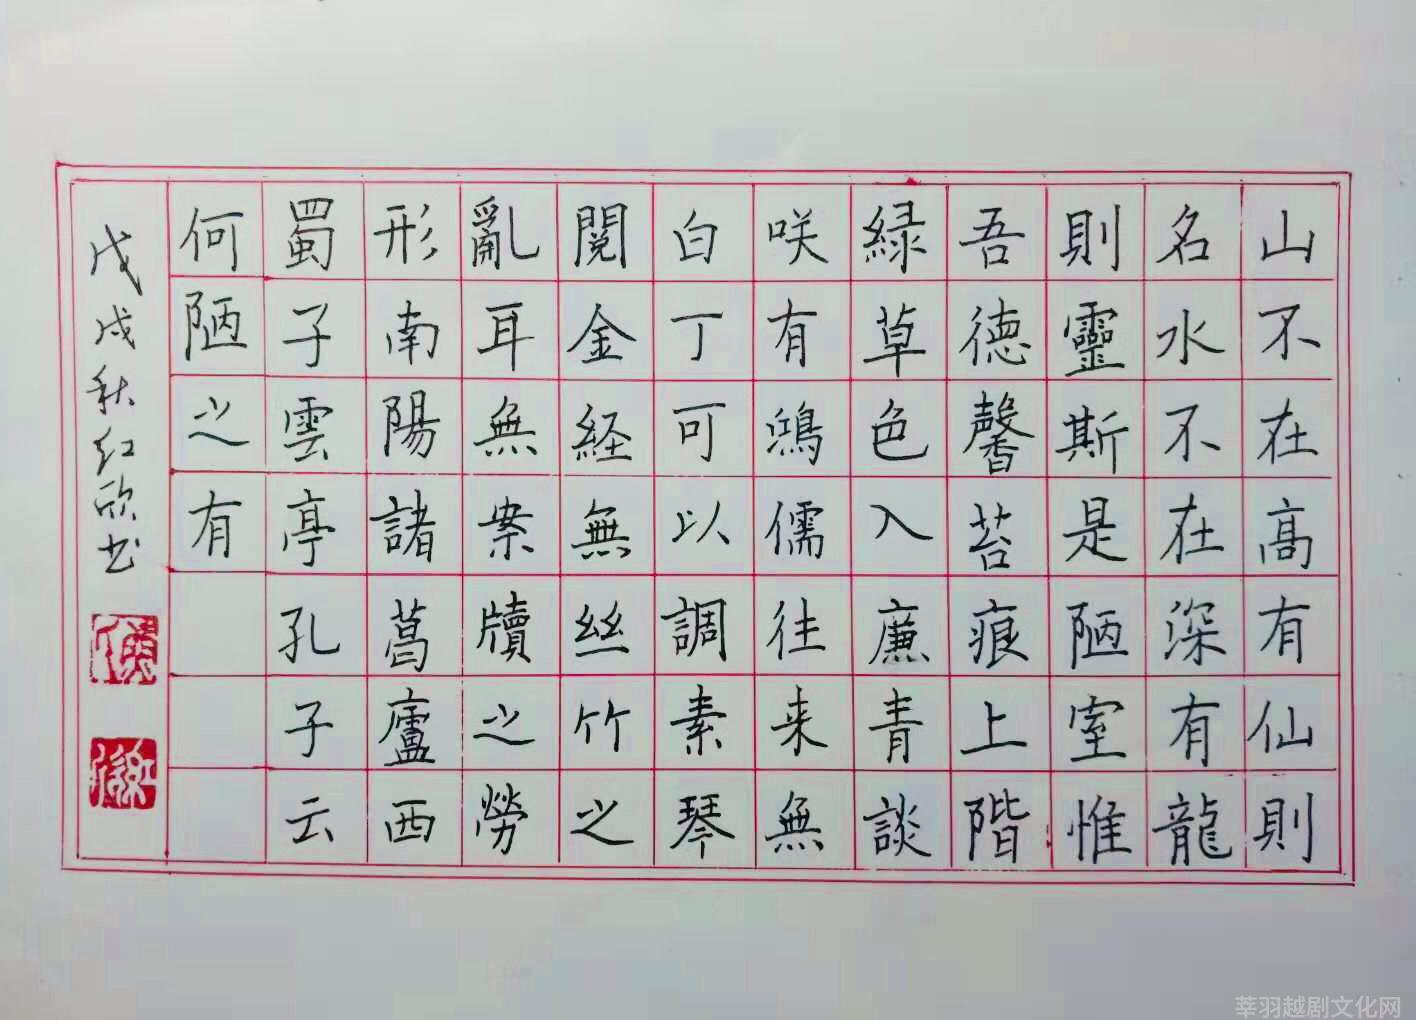 山不在高有仙則
名水不在深有龍
則靈斯是陋室惟
吾德馨苔痕上階
緑草色入廉青談
咲有鴻儒往来無
白丁可以調素琴
閲金経無絲竹之
亂耳無案牘之勞
形南陽諸葛廬西
蜀子雲亭孔子云
何陋之有
戊戌秋红欣书
莘羽越剧文化网